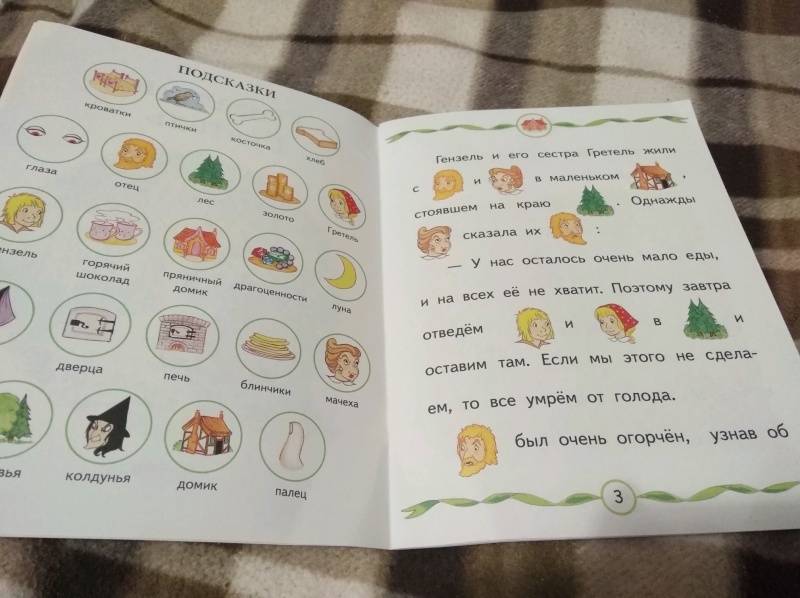 ПОДСКАЗКИ
кроватки птички косточка хлеб
глаза отец лес золото Гретель
горячий шоколад пряничный домик драгоценности луна
дверца печь блинчики мачеха
колдунья домик палец
Гензель и его сестра Гретель жили
с и в маленьком ,
стоявшем на краю . Однажды
сказала их :
— У нас осталось очень мало еды,
и на всех её не хватит. Поэтому завтра
отведём и в и
оставим там. Если мы этого не сдела-
ем, то все умрём от голода.
был очень огорчён, узнав об
3